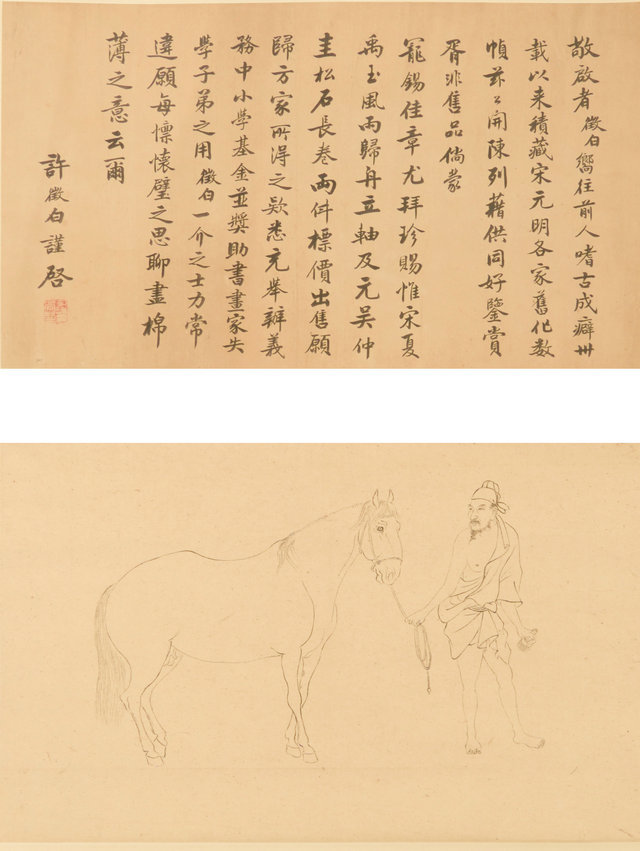 敬啟者徵白嚮往前人嗜古成癖卅
載以來積藏宋元明各家舊化數
幀茲公開陳列藉供同好鑒賞
胥非售品倘蒙
寵錫佳章尤拜珍賜惟宋夏
禹玉風雨歸舟立軸及元吳仲
圭松石長卷兩件標價出售願
歸方家所得之款悉充舉辦義
務中小學基金並獎助書畫家失
學子弟之用徵白一介之士力常
違願每懍懷璧之思聊盡棉
薄之意云爾
許徵白謹啓